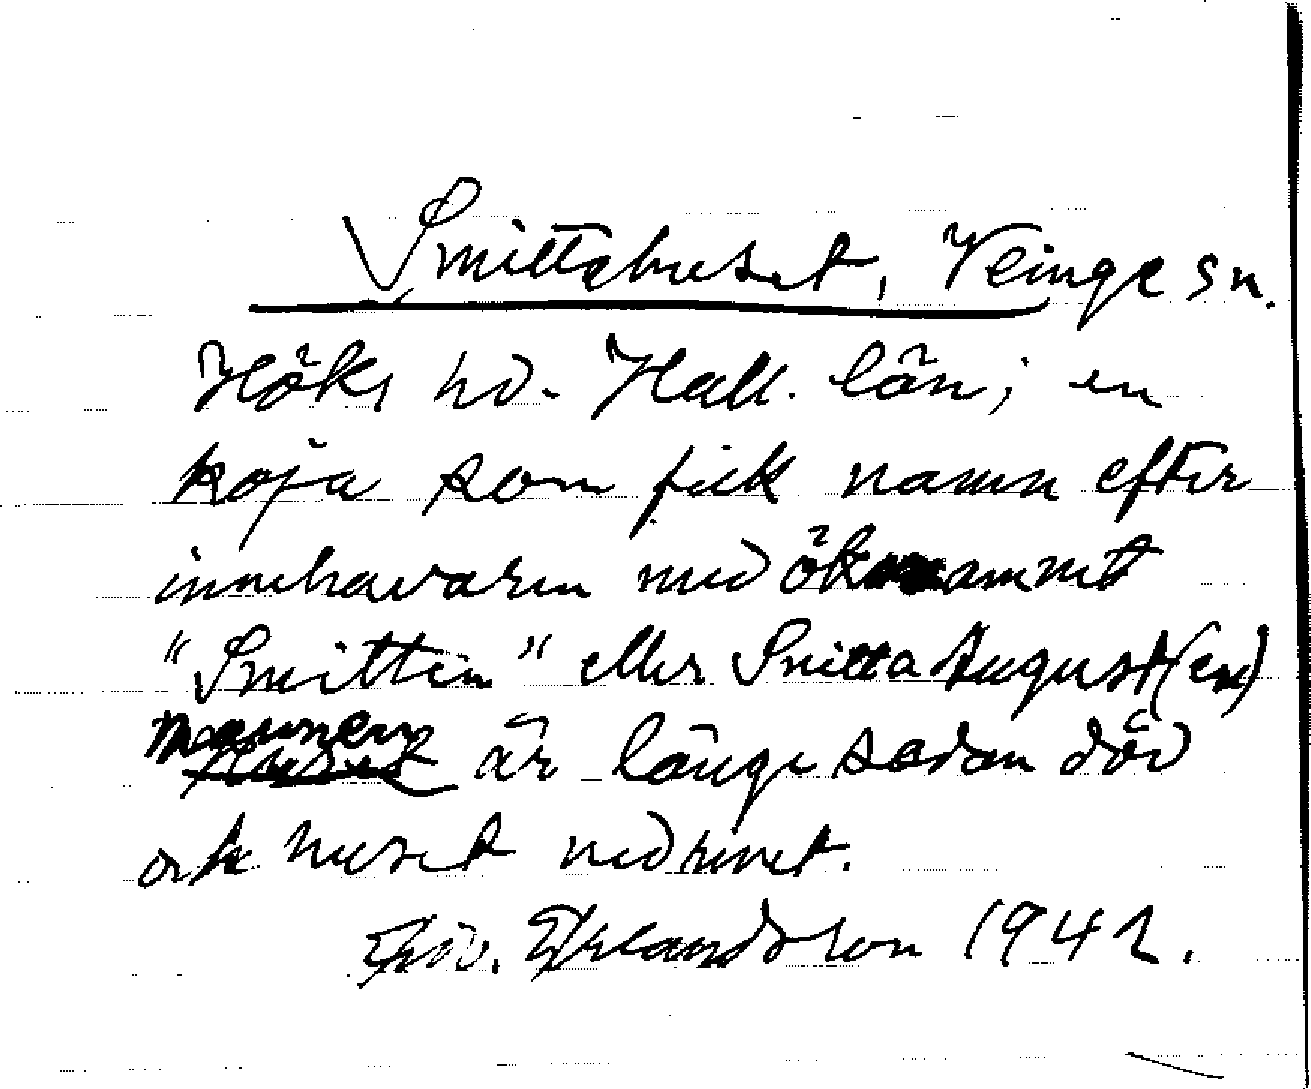 Smittehuset, Veinge sn.
Höks hd. Hall. län; en
koja som fick namn efter
innehavaren med öknamnet
"Smitten" eller Smitta August(en)
mannen är länge sedan död
och huset nedrivet.
Erlandsson 1942.